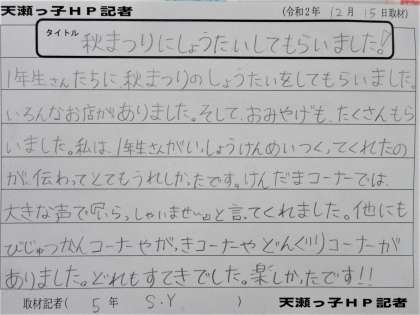 天瀬っ子HP記者 (令和2年 12月 15日取材)
タイトル 秋まつりにしょうたいしてもらいました!
1年生さんたちに秋まつりのしょうたいをしてもらいました。
いろんなお店がありました。そして、おみやげも、たくさんもら
いました。私は、1年生さんがいっしょうけんめいつくってくれたの
が、伝わってとてもうれしかったです。けんだまコーナーでは、
大きな声で「いらっしゃいませ。」と言ってくれました。他にも
びじゅつかんコーナーやがっきコーナーやどんぐりコーナーが
ありました。どれもすてきでした。楽しかったです!!
取材記者( 5年 S.Y ) 天瀬っ子HP記者